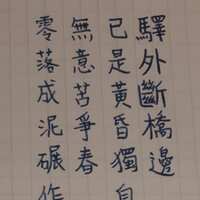 驛外斷橋邊
已是黃昏獨自
無意苦爭春
零落成泥碾作